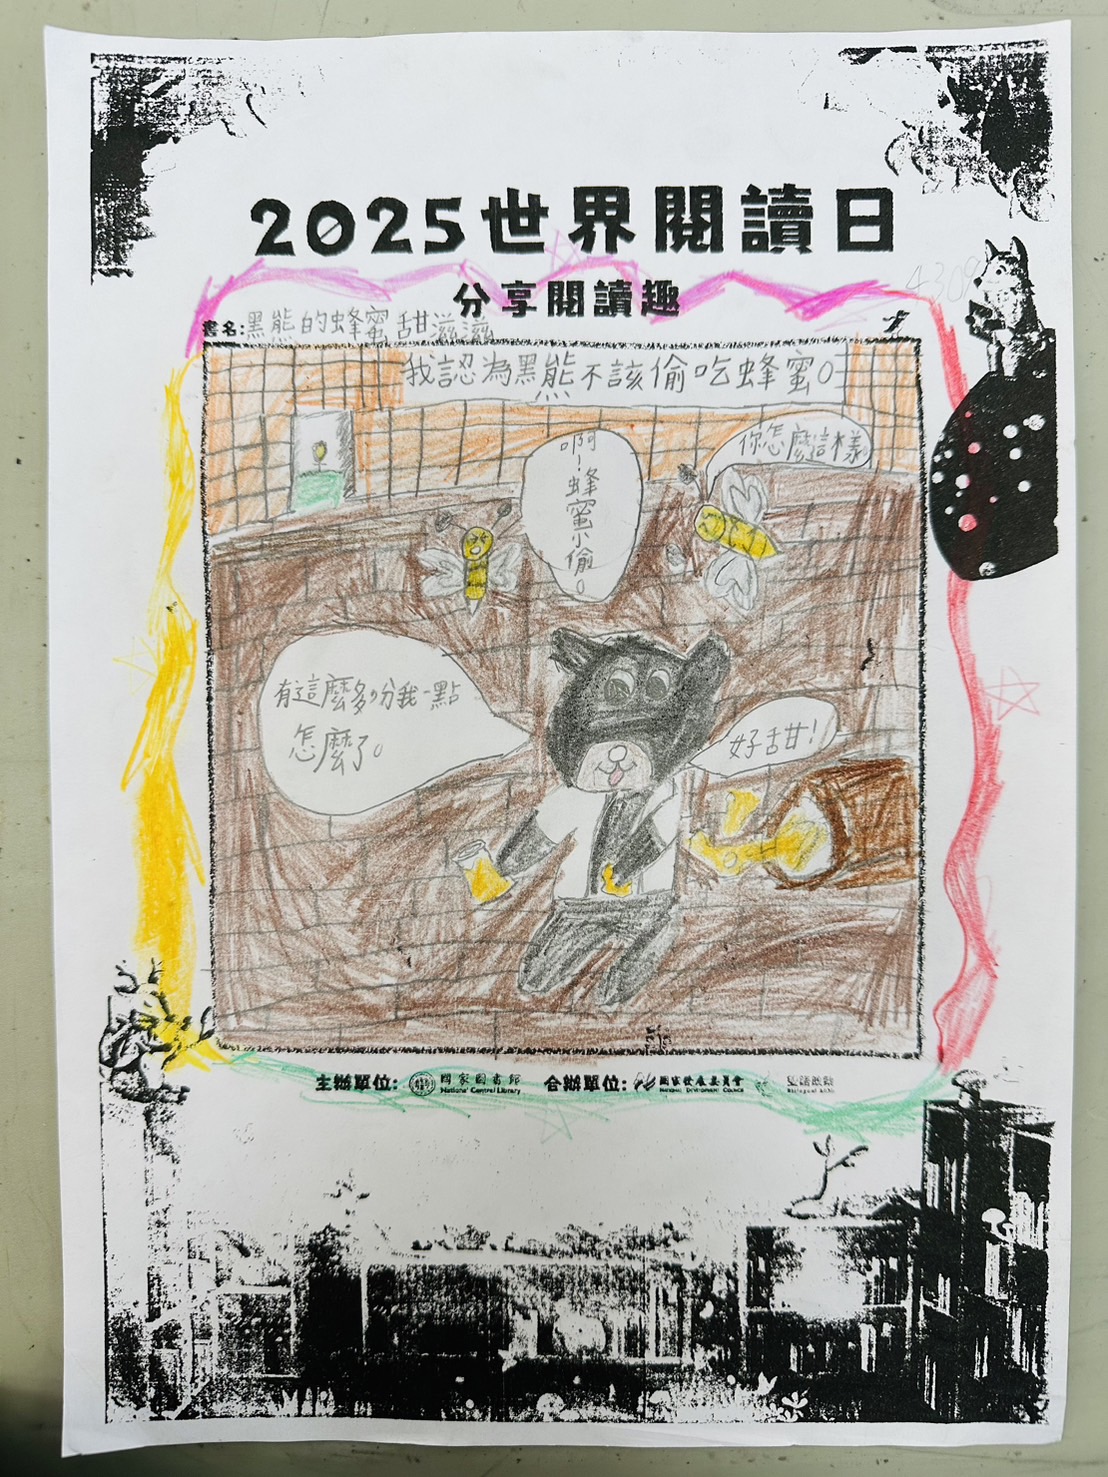 2025世界閱讀日
分享閱讀趣
4309
書名:黑熊的蜂蜜甜滋滋
我認為黑熊不該偷吃蜂蜜。
啊!蜂蜜小偷。
你怎麼這樣。
有這麼多,分我一點
怎麼了。
好甜!
主辦單位: 國家圖書館 合辦單位: 國家發展委員會
National Central Library National Development Council